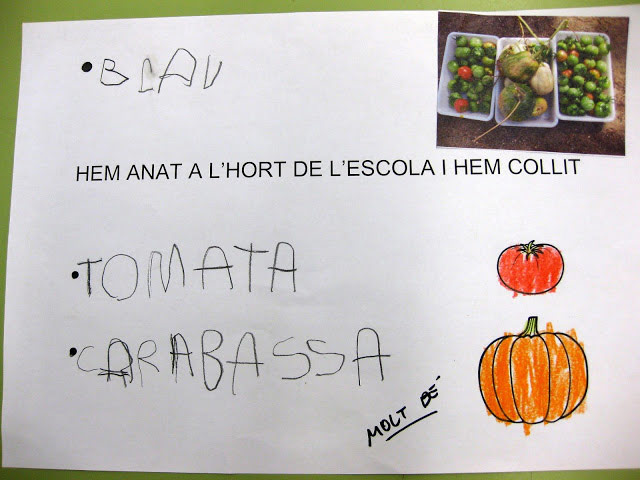 BLAU
HEM ANAT A L'HORT DE L'ESCOLA I HEM COLLIT
TOMATA
CARABASSA
MOLT BÉ